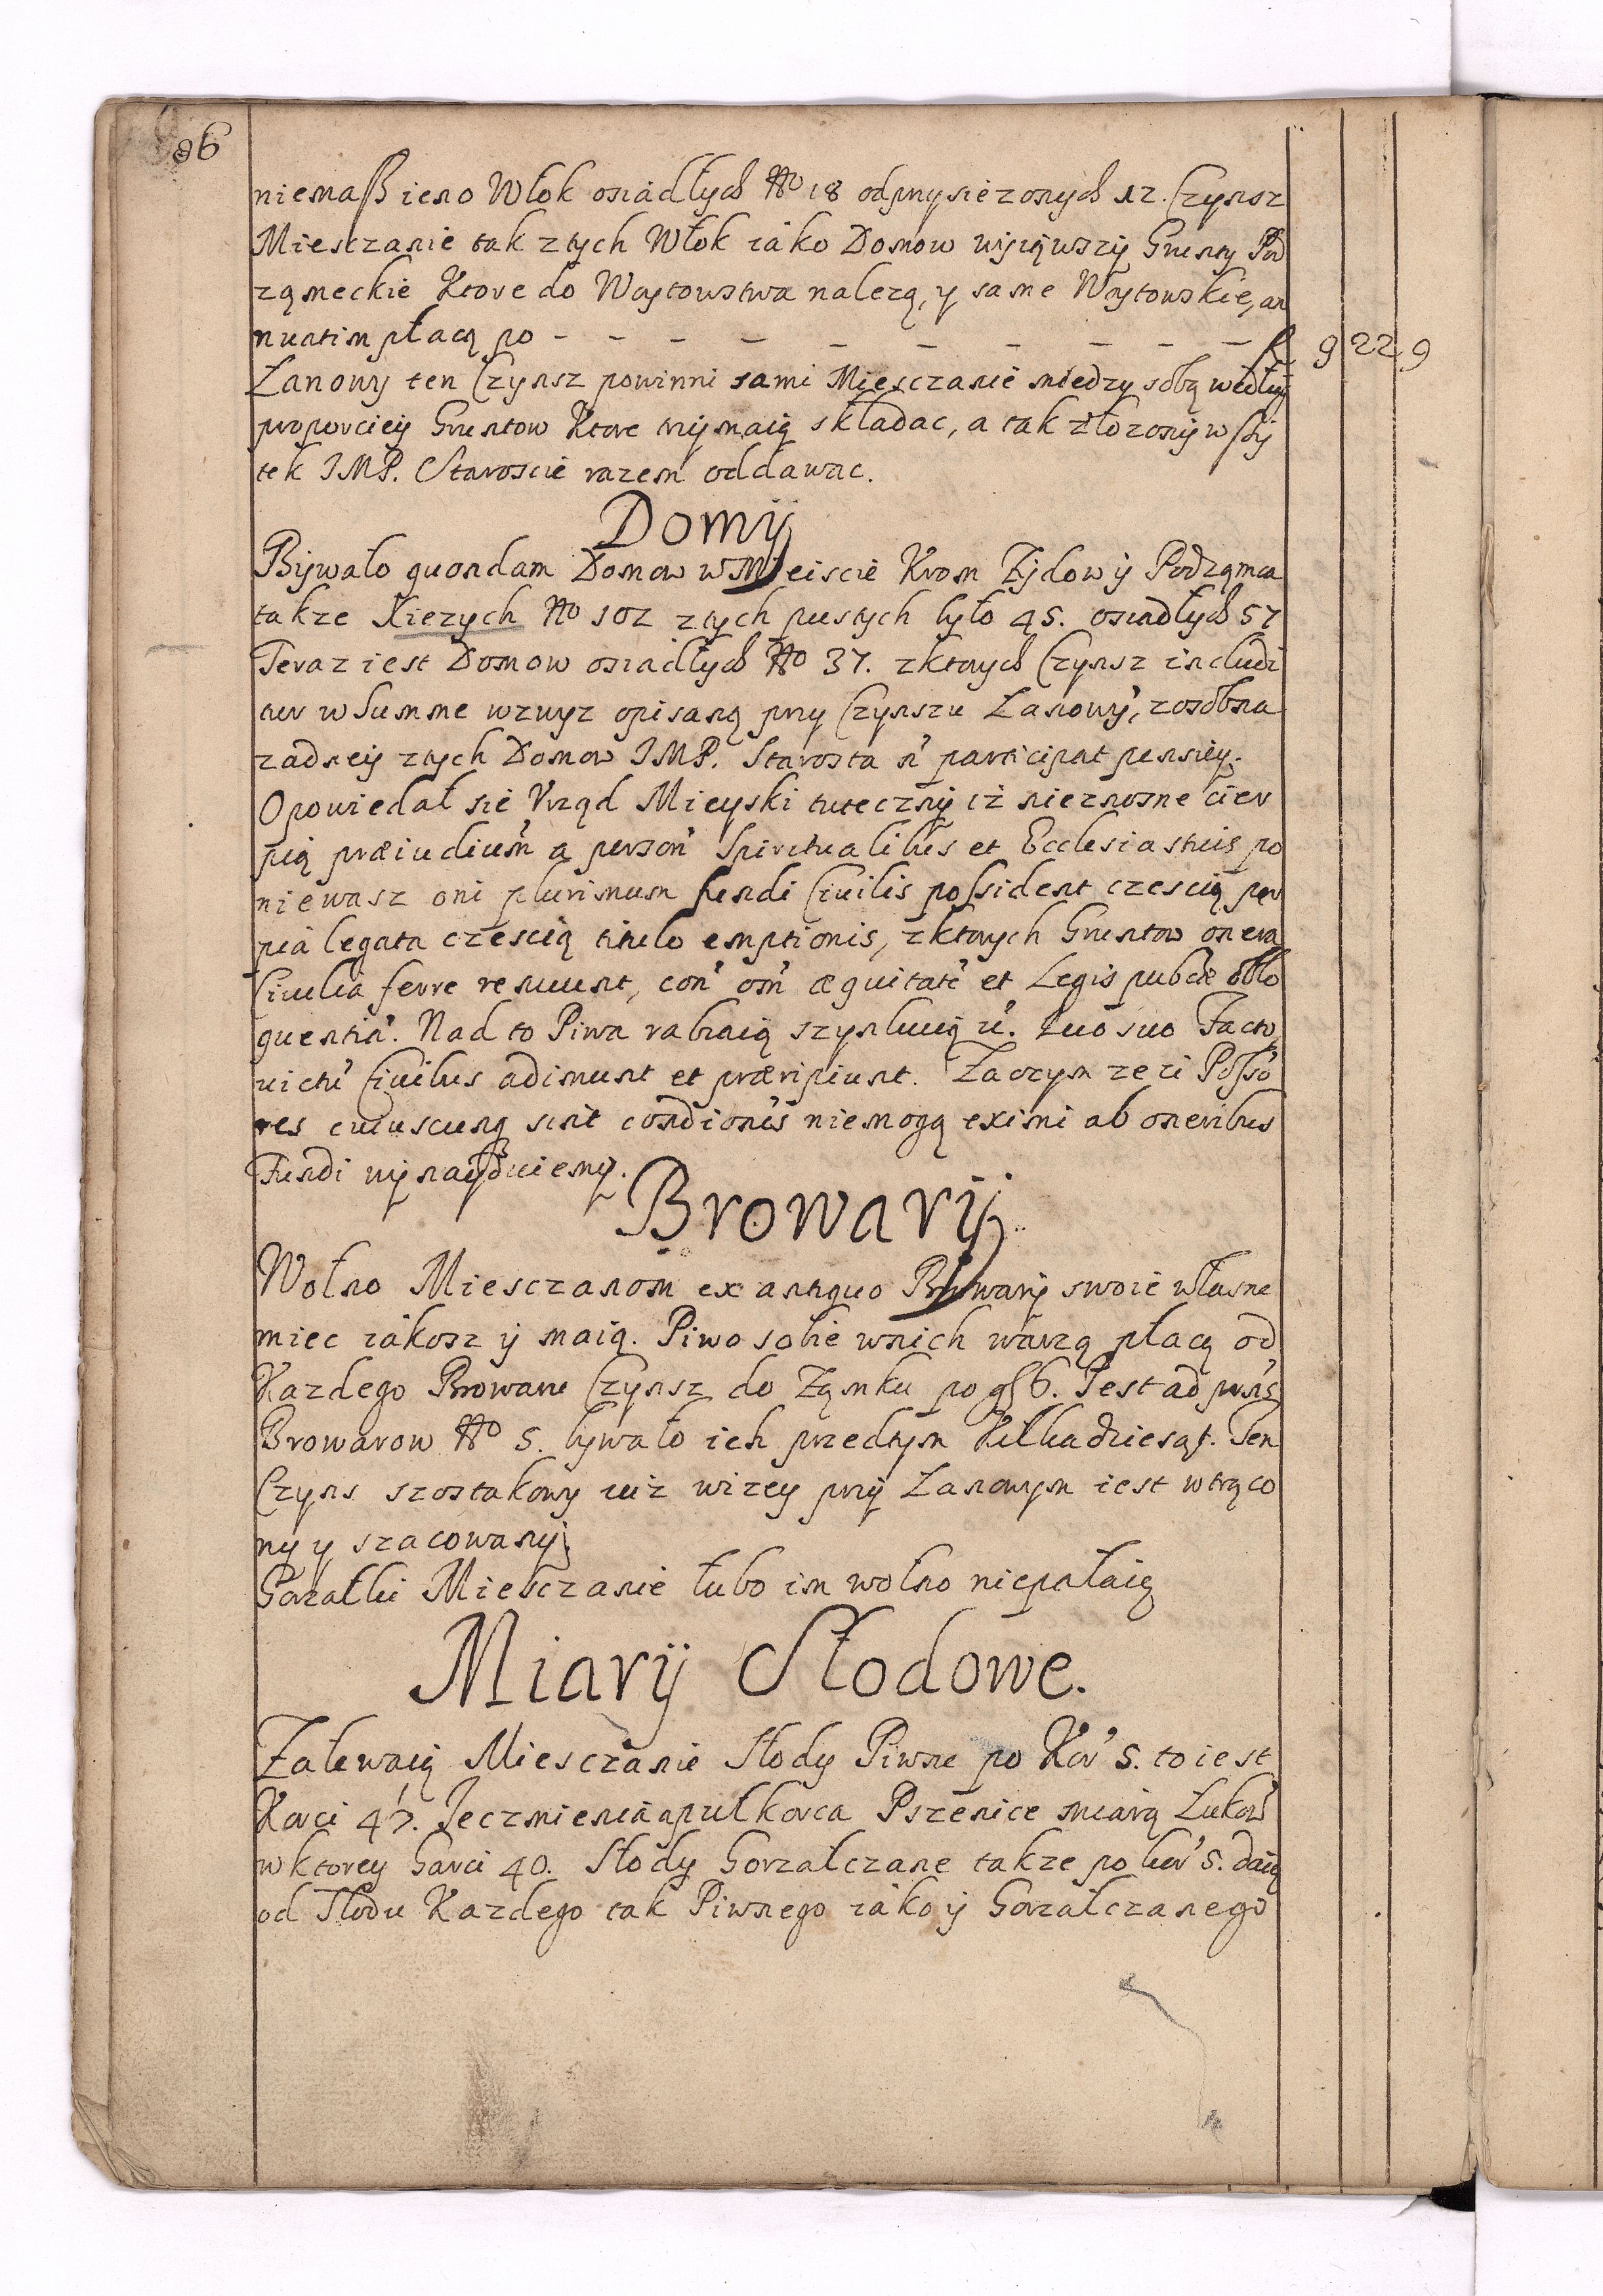 96
niemasz ieno Włok osiadłych No 18 odprzysiezonych 12. Czynsz
Miesczanie tak z tych Włok iáko Domow wyiąwszy Grunty Pod
ząmeckie Ktore do Woytowstwa nalezą, y same Woytowskie, an
nuatim płacą po - - - - - - - - - f 9 22 9
Łanowy ten Czynsz powinni sami Miesczanie miedzy sobą według
proporciey Gruntow Ktore trzymaią składac, a tak złozony wszy
tek IMP. Staroscie razem oddawac.
Domy
Bywało quondam Domow w Mieiscie Krom Zydow y Podząmcza
takze Xiezych No 102 z tych pustych było 45. osiadłych 57
Teraz iest Domow osiadłych No 37. z ktorych Czynsz includi
tur w Summe wzwyz opisaną przy Czynszu Łanowy', zosobna
zadney z tych Domow IMP. Starosta n' participat pensiey.
Opowiedał sie Vrząd Mieyski tuteczny iż nieznosne cier
pią præiudium' a person' Spiritualibus et Ecclesiasticis po
niewasz oni plurimum fundi Ciuilis possident czescią per
pia legata czescią titulo emptionis, z ktorych Gruntow onera
Ciuilia ferre renuunt, con' om' æquitate' et Legis pubcæ oblo
quentia'. Nad to Piwa rabiaią szynkuią u'. Quo suo Facto
uictu' Ciuibus adimunt et præripiunt. Zaczym ze ci Posso'
res cuiuscunq sint condionis niemogą eximi ab oneribus
Fundi wynayduiemy.
Browary
Wolno Miesczanom ex antiquo Browary swoie własne
miec iákosz y maią. Piwo sobie w nich warzą płacą od
Kazdego Browaru Czynsz do Ząmku po gr 6. Iest ad præns
Browarow No 5. bywało ich przedtym Kilkadziesąt. Ten
Czyns szostakowy iuż wizey przy Łanowym iest wtrąco
ny y szacowany.
Gorzałki Miesczanie lubo im wolno niepalaią
Miary Słodowe.
Zalewaią Miesczanie Słody Piwne po Kor' 5. to iest
Korci 4½. Ieczmienia a pułkorca Pszenice miarą Łukow'
w ktorey Garci 40. Słody Gorzałczane takze po kor' 5. daią
od Słodu Kazdego tak Piwnego iáko y Gorzałczanego